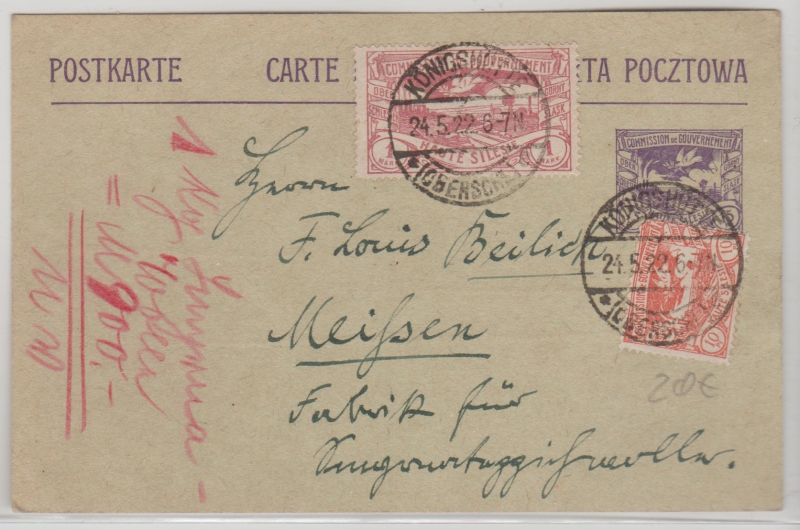 POSTKARTE CARTE TA POCZTOWA
COMMISSION DE GOUVERNEMENT
HAUTE SILESIE
1 MARK
KÖNIGSHÜTTE
24.5.22.6-7N
*(OBERSCHL.)
COMMISSION DE GOUVERNEMENT
KÖNIGSHÜTTE
24.5.22.6-7N
*(OBERSCHL.)
10
Herrn
F. Louis Beilich
Meißen
Fabrik für
Smyrnateppichwolle.
1 Kg Smyrna-
= M 900.-
20€